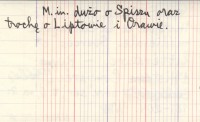 M. in. dużo o Spiszu oraz
trochę o Liptowie i Orawie.